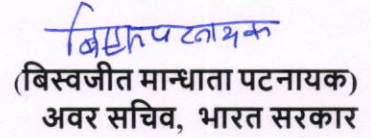 (बिस्वजीत मान्धाता पटनायक)
अवर सचिव, भारत सरकार